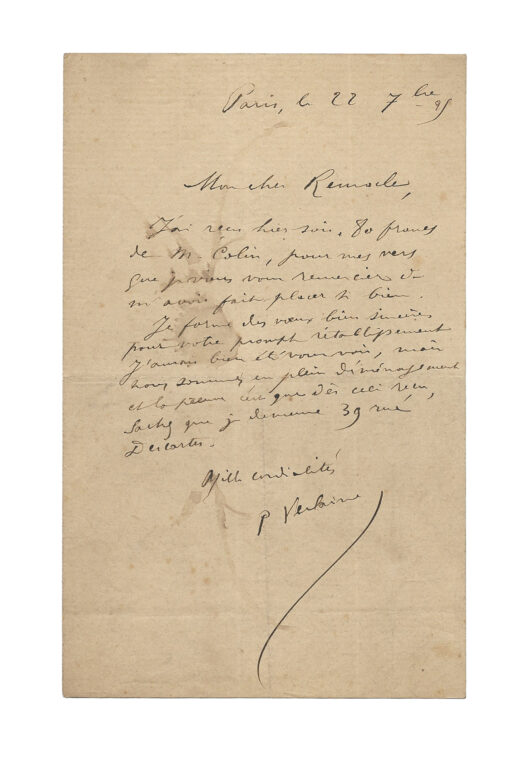 Paris, le 22 7bre 95
Mon cher Remacle,
J'ai reçu hier soir, 80 francs
de M. Colin, pour mes vers
que je vous remercier de
m'avoir fait placer si bien.
Je forme des vœux bien sincères
pour votre prompt rétablissement
J'aurais bien été vous voir, mais
nous sommes en plein déménagement
et la preuve c'est que dès ceci reçu,
sachez que je demeure 39 rue
Descartes.
Mille cordialités
P Verlaine